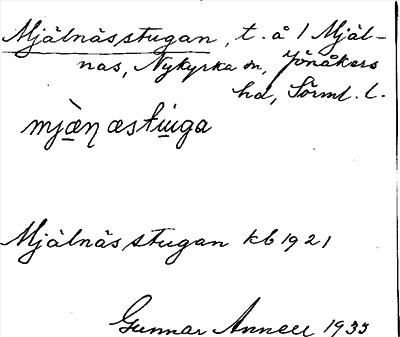 Mjälnässtugan, t. å 1 Mjäl-
näs, Nykyrka sn, Jönåkers
hd, Sörml. l.
mjæ̀ṇæstu̇ga
Mjälnässtugan kb 1921
Gunnar Annell 1933